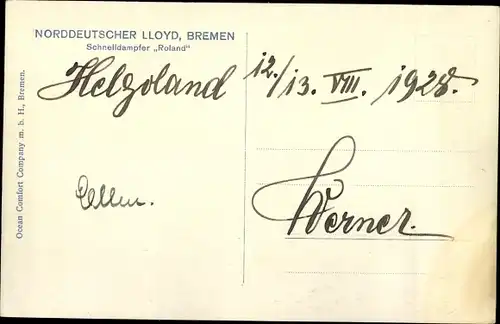 NORDDEUTSCHER LLOYD, BREMEN
Schnelldampfer „Roland"
Helgoland 12./13. VIII. 1928.
Werner.
Ocean Comfort Company m. b. H., Bremen.